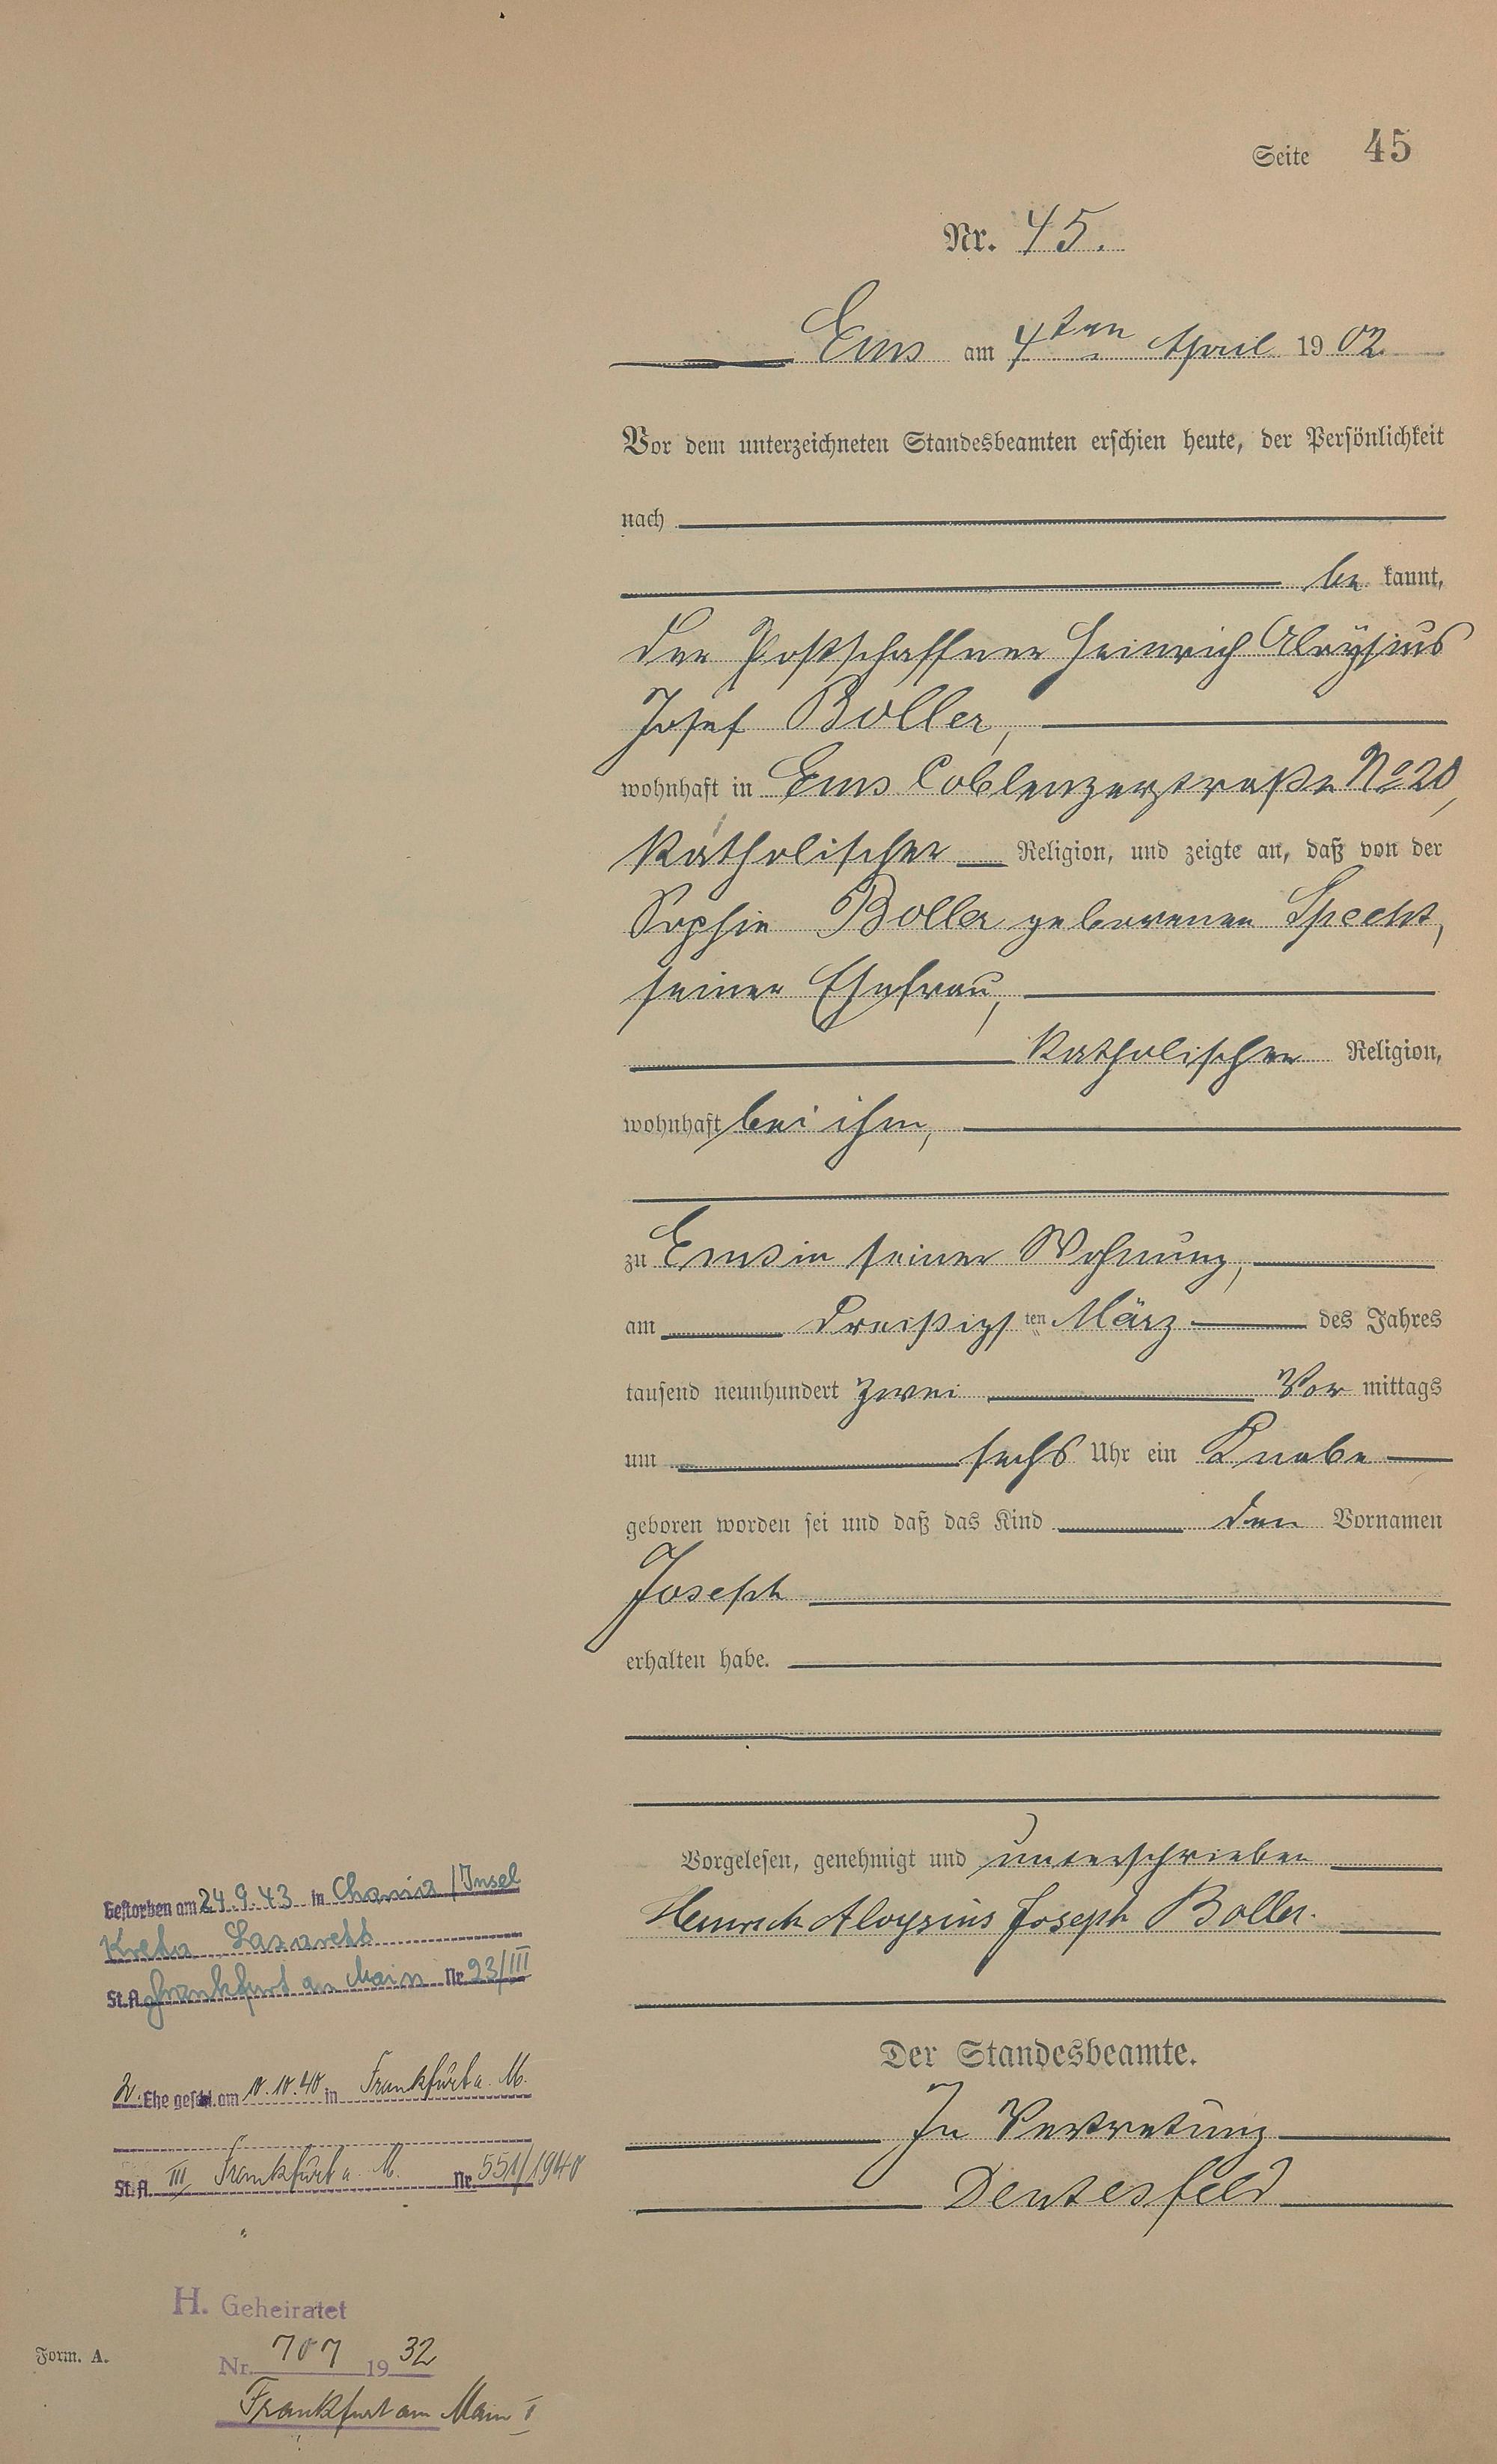 Seite 45
Nr. 45.
Ems am 4ten April 1902.
Vor dem unterzeichneten Standesbeamten erschien heute, der Persönlichkeit
nach
be kannt,
der Postschaffner Heinrich Aloysius
Josef Boller,
wohnhaft in Ems Coblenzerstraße No 20,
katholischer Religion, und zeigte an, daß von der
Sophie Boller geborenen Specht,
seiner Ehefrau,
katholischer Religion,
wohnhaft bei ihm,
zu Ems in seiner Wohnung,
am Dreißigsten März des Jahres
tausend neunhundert zwei Vor mittags
um sechs Uhr ein Knabe
geboren worden sei und daß das Kind den Vornamen
Joseph
erhalten habe.
Vorgelesen, genehmigt und unterschrieben
Heinrich Aloysius Joseph Boller.
Der Standesbeamte.
In Vertretung
Gestorben am 24.9.43 in Chania / Insel
Kreta Lazarett
St.A. Frankfurt am Main Nr. 93/III
2. Ehe geschl. am 10.10.40 in Frankfurt a. M.
St.A. III Frankfurt a. M. Nr. 551/1940
H. Geheiratet
Nr. 707 1932
Frankfurt am Main I
Form. A.